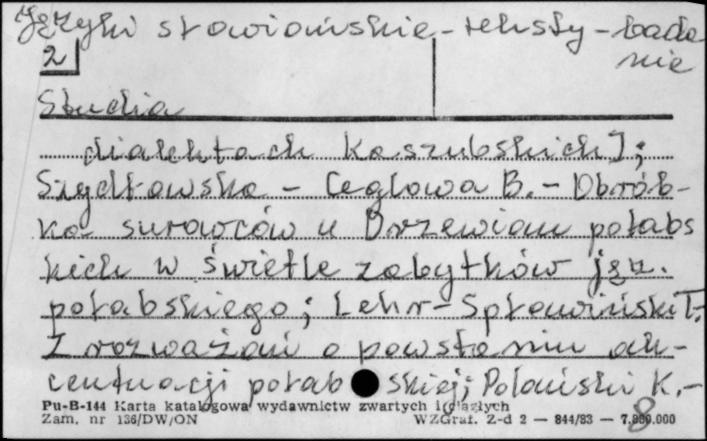 Języki słowiańskie - teksty - bada
nie
2
Studia
dialektach kaszubskich];
Szydłowska - Ceglowa B. - Obrób-
ka surowców u Drzewian połabs
kich w świetle zabytków jęz.
połabskiego; Lehr-Spławiński T.
Z rozważań o powstaniu ak-
centuacji połab skiej; Polański K. -
Pu-B-144 Karta katalogowa wydawnictw zwartych i ciągłych
Zam. nr 136/DW/ON WZGraf. Z-d 2 — 844/83 — 7.800.000
8